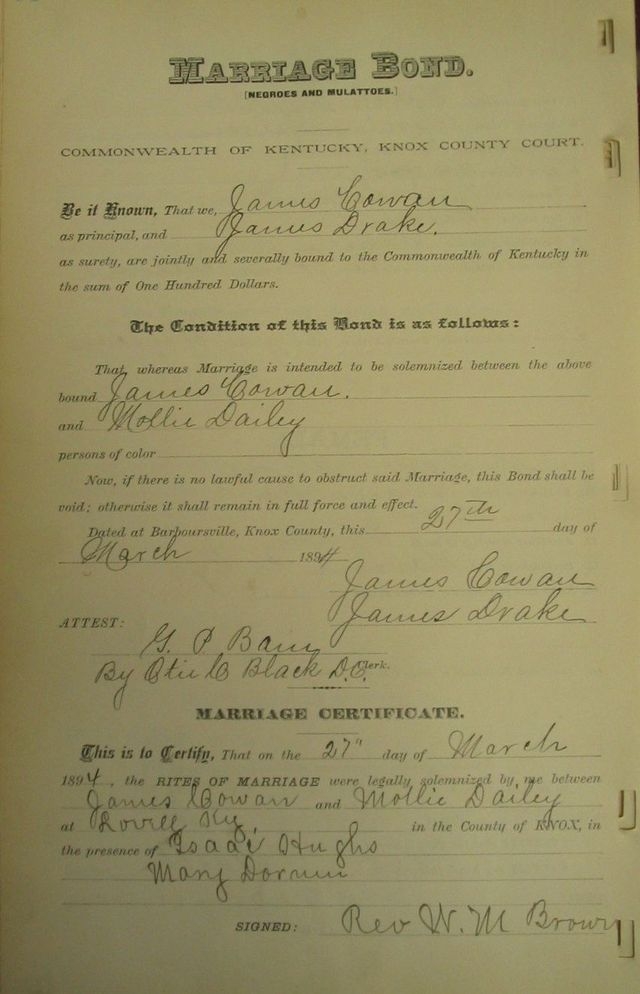 MARRIAGE BOND.
[NEGROES AND MULATTOES.]
COMMONWEALTH OF KENTUCKY, KNOX COUNTY COURT.
Be it Known, That we, James Cowan
as principal, and James Drake.
as surety, are jointly and severally bound to the Commonwealth of Kentucky in
the sum of One Hundred Dollars.
The Condition of this Bond is as follows:
That, whereas Marriage is intended to be solemnized between the above
bound James Cowan.
and Mollie Dailey
persons of color
Now, if there is no lawful cause to obstruct said Marriage, this Bond shall be
void; otherwise it shall remain in full force and effect.
Dated at Barboursville, Knox County, this 27th day of
March 1894
James Cowan
James Drake
ATTEST:
G. P Bain
By Otis C Black D.C. Clerk.
MARRIAGE CERTIFICATE.
This is to Certify, That on the 27" day of March
1894, the RITES OF MARRIAGE were legally solemnized by me between
James Cowan and Mollie Dailey
at Ky, in the County of KNOX, in
the presence of Isaac Hughs
Mary
SIGNED: Rev W. M Brown